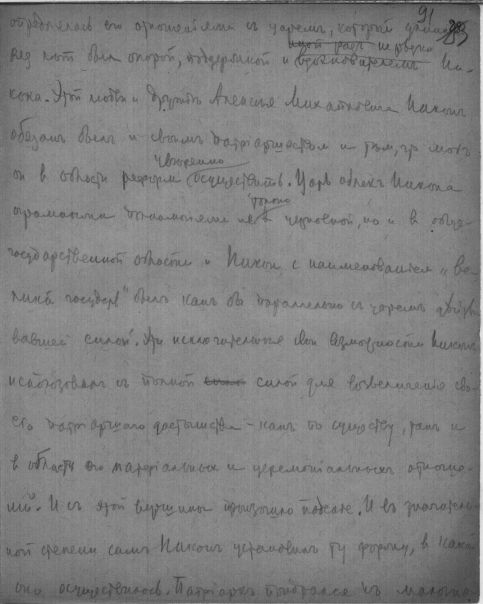 91
определялась его отношениями съ царемъ, который
ряд лѣт былъ опорой, поддержкой и вдохновителемъ Ни-
кона. Этой любви и дружбѣ Алексѣя Михайловича Никонъ
обязанъ былъ и своимъ патріаршествомъ и тѣмъ, что могъ
уверенно
он в области реформ осуществить. Царь облекъ Никона
только
огромными полномочіями не в церковной, но и в обще-
государственной области и Никон с наименованіем „Ве-
ликій государь" былъ какъ бы параллельно съ царемъ дѣйство-
вавшей силой. Эти исключительныя свои возможности Никонъ
использовалъ съ полной силой для возвеличенія сво-
его патріаршаго достоинства – какъ по существу, такъ и
в области его матеріальных и церемоніальныхъ отноше-
ній. И съ этой вершины произошло паденіе. И въ значитель-
ной степени самъ Никонъ установилъ ту форму, в какой
оно осуществилось. Патріархъ